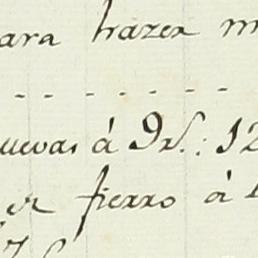 ara hazer m
- - - - - - -
uevas á 9 rs.: 12
er fierro á